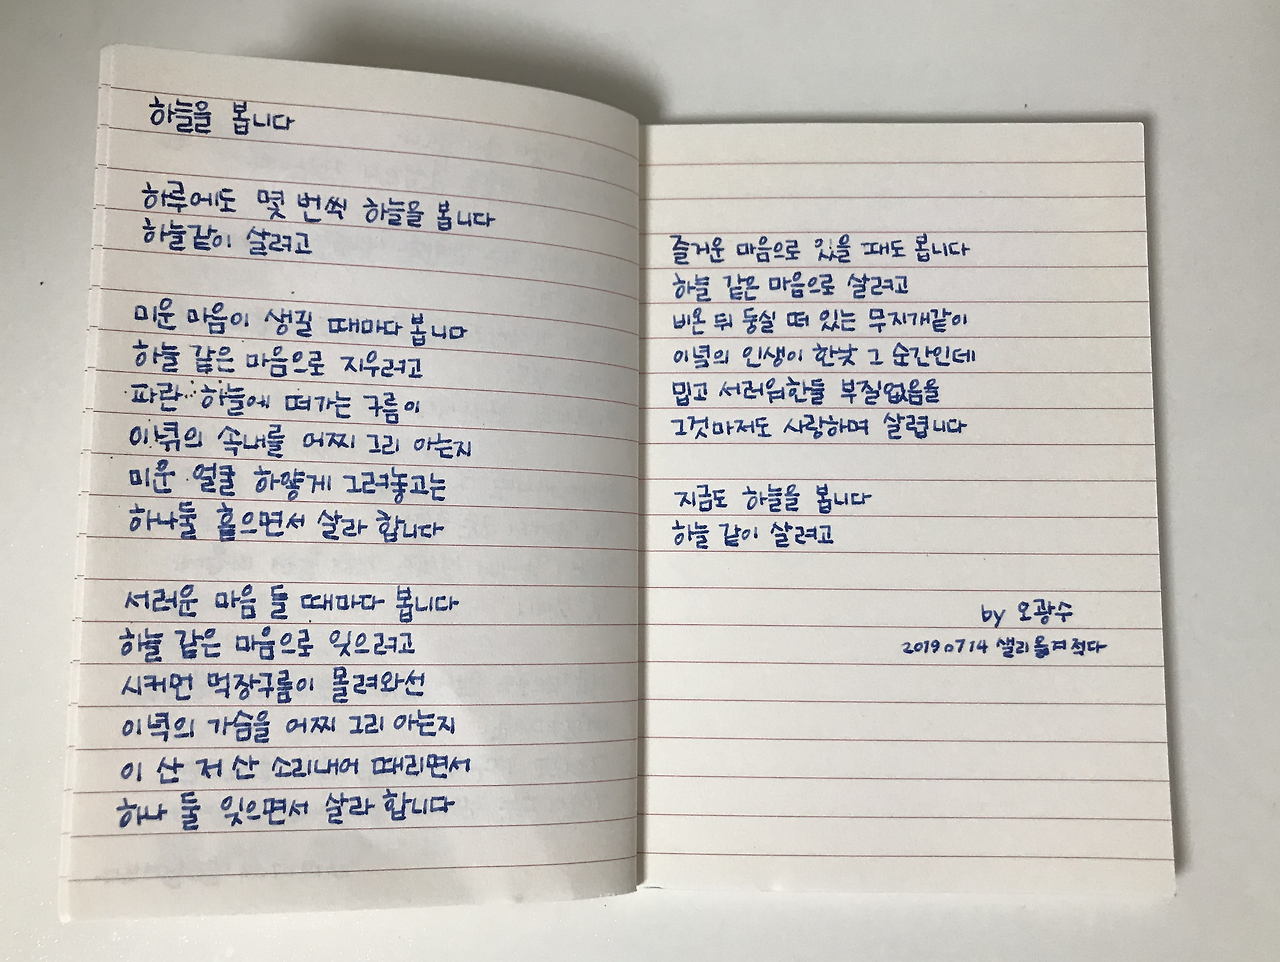 하늘을 봅니다
하루에도 몇 번씩 하늘을 봅니다
하늘같이 살려고
미운 마음이 생길 때마다 봅니다
하늘 같은 마음으로 지우려고
파란 하늘에 떠가는 구름이
이녁의 속내를 어찌 그리 아는지
미운 얼굴 하얗게 그려놓고는
하나둘 흩으면서 살라 합니다
서러운 마음 들 때마다 봅니다
하늘 같은 마음으로 잊으려고
시커먼 먹장구름이 몰려와선
이녁의 가슴을 어찌 그리 아는지
이 산 저 산 소리내어 때리면서
하나 둘 잊으면서 살라 합니다
즐거운 마음으로 있을 때도 봅니다
하늘 같은 마음으로 살려고
비온 뒤 둥실 떠 있는 무지개같이
이녁의 인생이 한낮 그 순간인데
밉고 서러워한들 부질없음을
그것마저도 사랑하며 살렵니다
지금도 하늘을 봅니다
하늘 같이 살려고
by 오광수
20190714 샐리옮겨적다